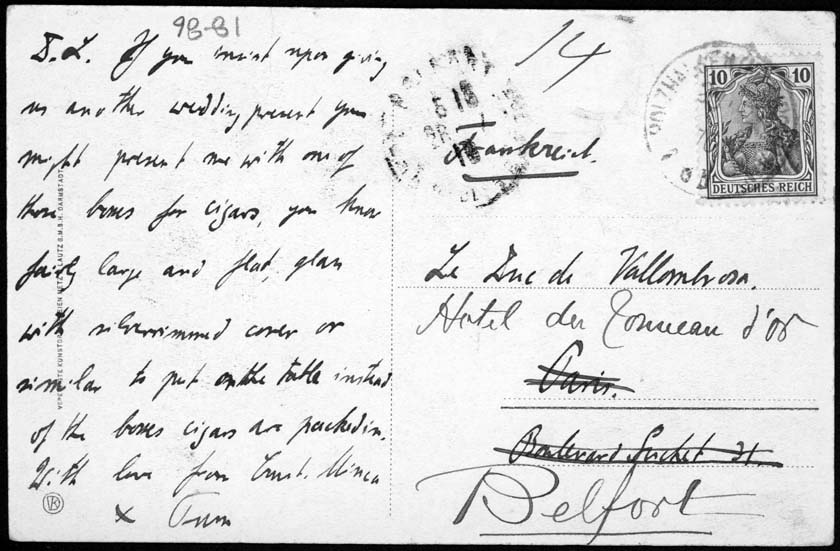 98-81
D. L. If you insist upon giving
us another wedding present you
might present me with one of
those boxes for cigars, you know
fairly large and flat, glass
with silverrimmed cover or
similar to put on the table instead
of the boxes cigars are packed in.
With love from Const. Minca
x
14
Frankreich.
10 10
DEUTSCHES REICH
Le Duc de Vallombrosa.
Hotel du Tonneau d'or
Paris.
Boulevard Suchet 21.
Belfort